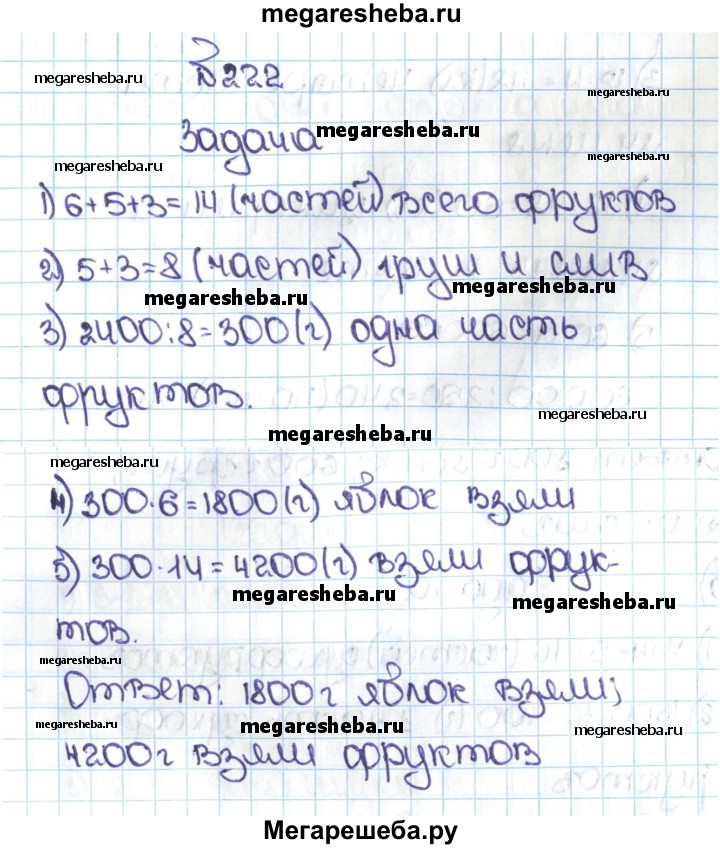 megaresheba.ru
№222
megaresheba.ru
megaresheba.ru
Задача
megaresheba.ru
megaresheba.ru
megaresheba.ru
1) 6+5+3=14 (частей) всего фруктов
2) 5+3=8 (частей) груш и слив
megaresheba.ru
megaresheba.ru
3) 2400:8=300(г) одна часть
фруктов.
megaresheba.ru
megaresheba.ru
megaresheba.ru
4) 300·6=1800(г) яблок взяли
5) 300·14=4200(г) взяли фрук-
megaresheba.ru
megaresheba.ru
тов.
megaresheba.ru
Ответ: 1800г яблок взяли;
megaresheba.ru
megaresheba.ru
megaresheba.ru
4200г взяли фруктов
Мегарешеба.ру